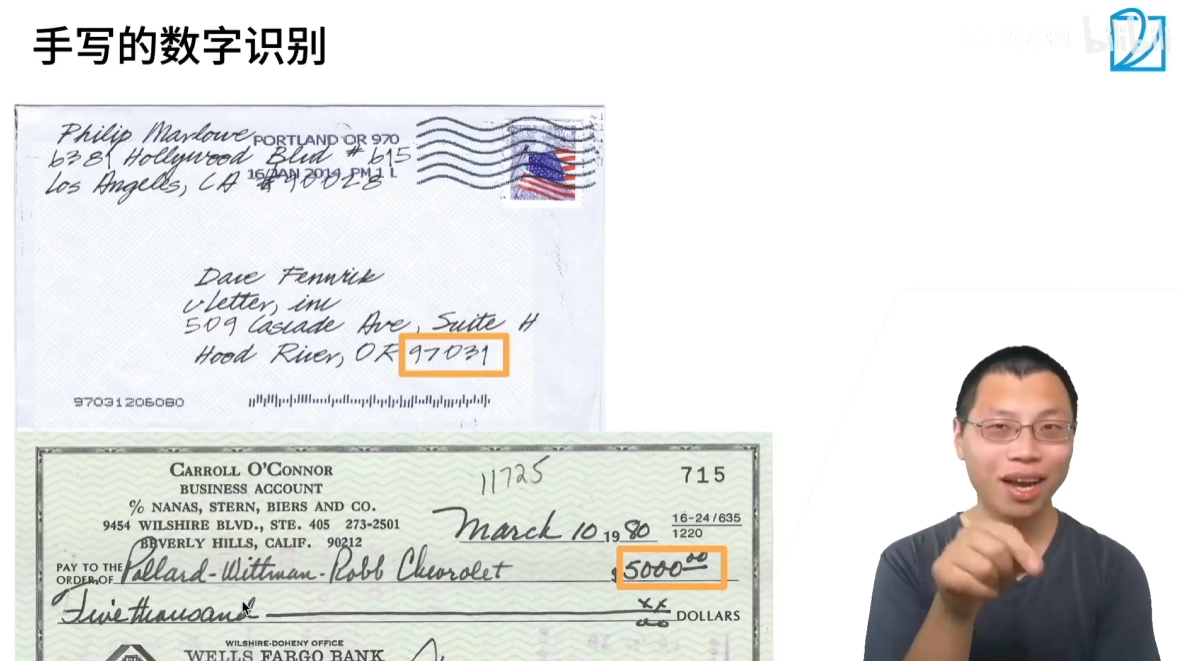 手写的数字识别
bilibili
Philip Marlowe
PORTLAND OR 970
6381 Hollywood Blvd # 615
16 JAN 2014 PM 1 L
Los Angeles, CA 90028
Dave Fennwick
uLetter, inc
509 Cascade Ave, Suite H
Hood River, OR 97031
97031206080
CARROLL O'CONNOR
BUSINESS ACCOUNT
% NANAS, STERN, BIERS AND CO.
9454 WILSHIRE BLVD., STE. 405 273-2501
BEVERLY HILLS, CALIF. 90212
11725
715
March 10 1980
16-24/635
1220
PAY TO THE
ORDER OF Pollard-Wittman-Robb Chevrolet $5000 00
Five thousand xx DOLLARS
00
WILSHIRE-DOHENY OFFICE
WELLS FARGO BANK